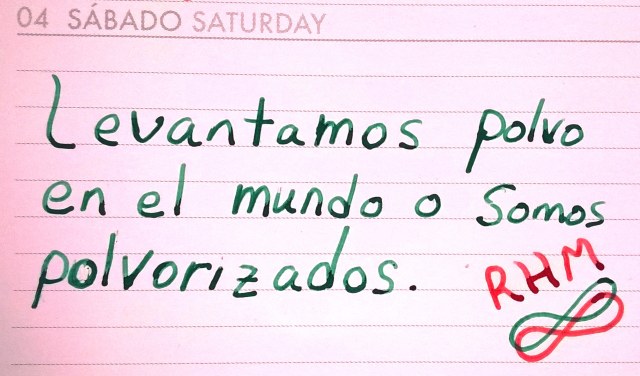 04 SÁBADO SATURDAY
Levantamos polvo
en el mundo o Somos
polvorizados.
RHM